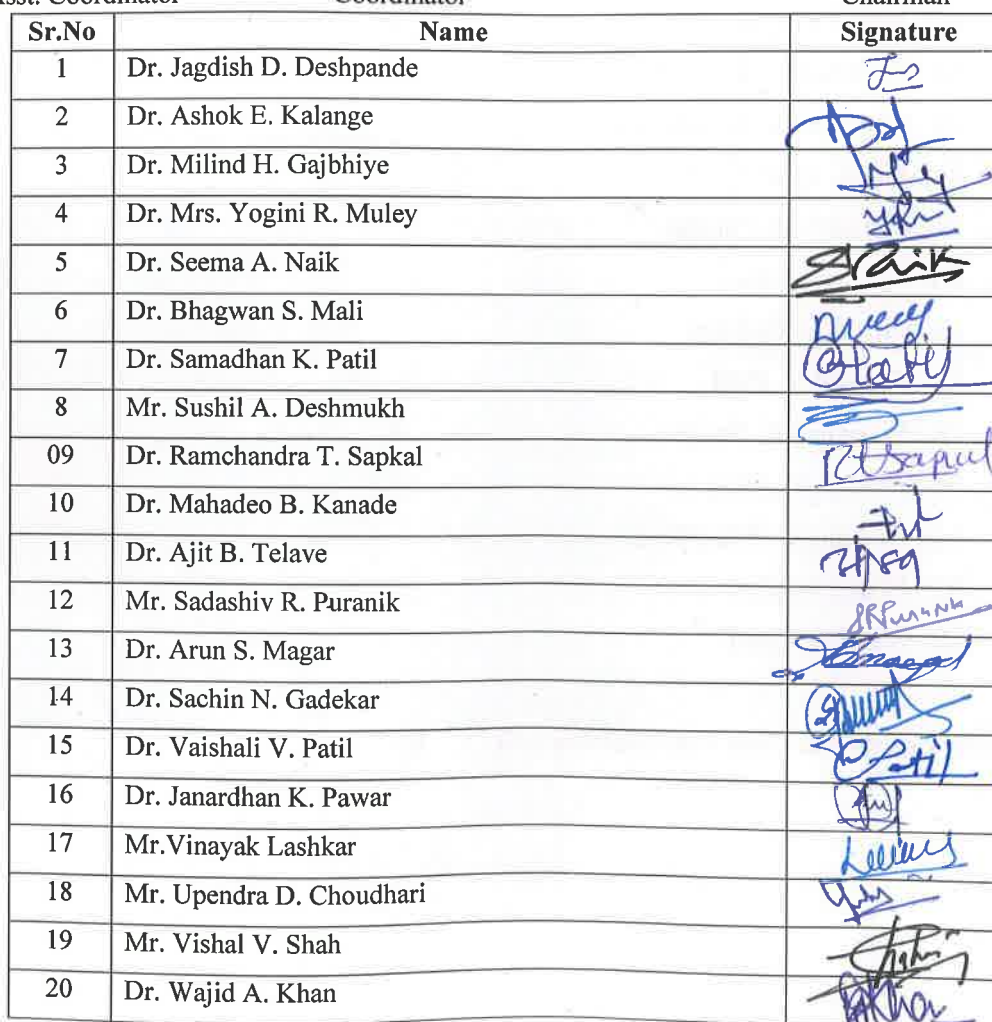 Asst. Coordinator Coordinator Chairman
Sr.No Name Signature
1 Dr. Jagdish D. Deshpande
2 Dr. Ashok E. Kalange
3 Dr. Milind H. Gajbhiye
4 Dr. Mrs. Yogini R. Muley
5 Dr. Seema A. Naik
6 Dr. Bhagwan S. Mali
7 Dr. Samadhan K. Patil
8 Mr. Sushil A. Deshmukh
09 Dr. Ramchandra T. Sapkal
10 Dr. Mahadeo B. Kanade
11 Dr. Ajit B. Telave
12 Mr. Sadashiv R. Puranik
13 Dr. Arun S. Magar
14 Dr. Sachin N. Gadekar
15 Dr. Vaishali V. Patil Patil
16 Dr. Janardhan K. Pawar
17 Mr.Vinayak Lashkar
18 Mr. Upendra D. Choudhari
19 Mr. Vishal V. Shah
20 Dr. Wajid A. Khan